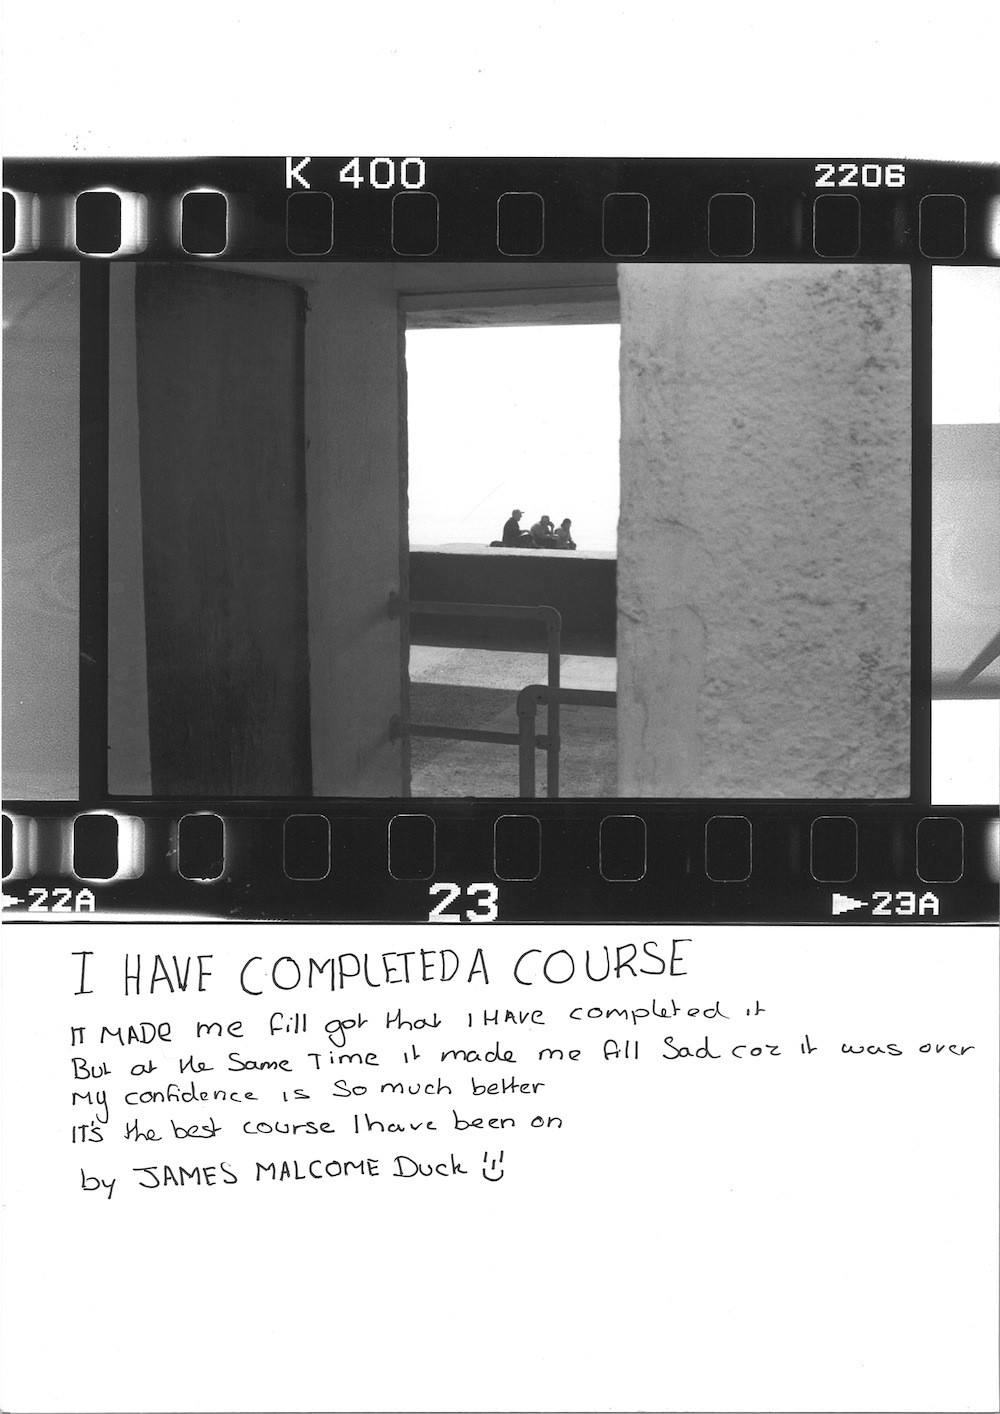 K 400 2206
▶22A 23 ▶23A
I HAVE COMPLETED A COURSE
IT MADE me fill got that I HAVE completed it
But at the same Time it made me fill sad coz it was over
My confidence is so much better
IT'S the best course I have been on
by JAMES MALCOME Duck